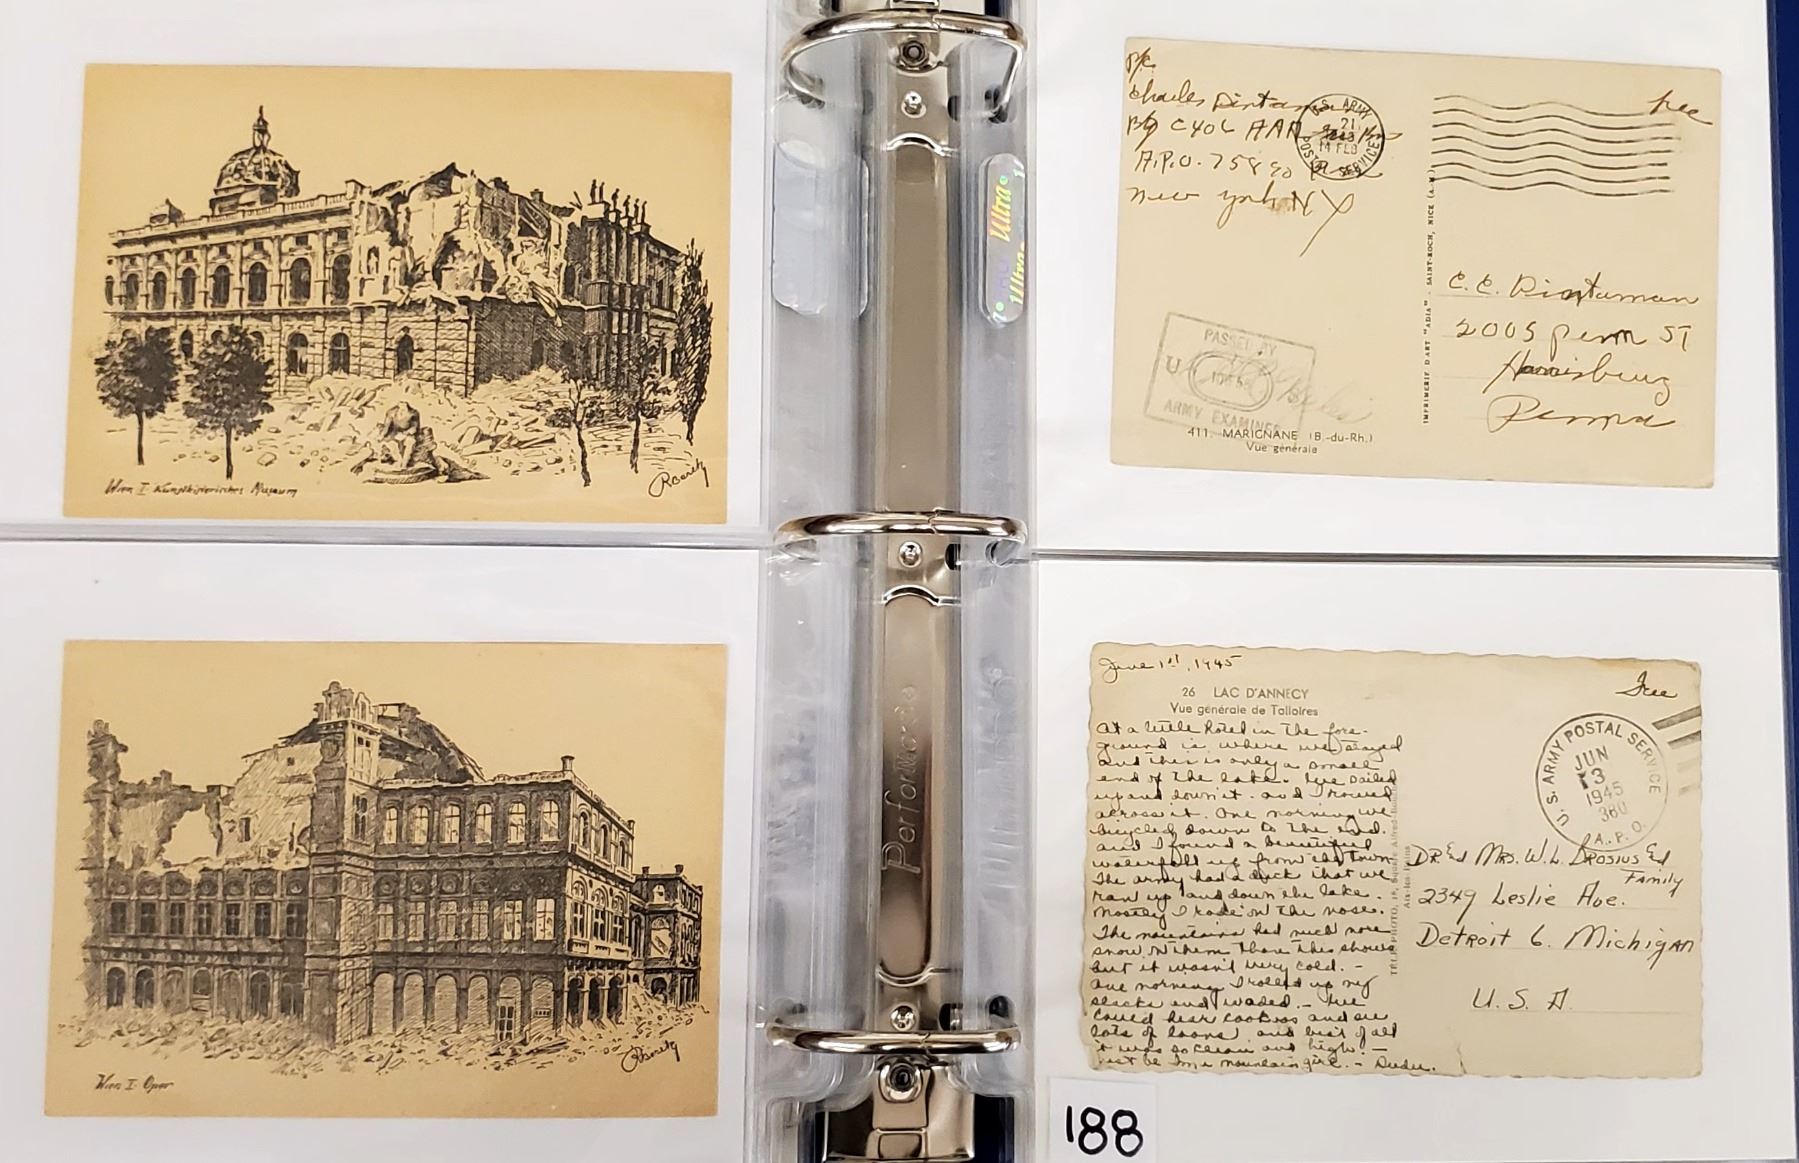 Wien I. Kunsthistorisches Museum
Wien I. Oper
Performance
Ultra
P/c.
Charles
A.P.O. 758
New York NY
U.S. ARMY
21
14 FEB
POSTAL SERVICE
free
IMPRIMERIE D'ART "ADIA" - SAINT-ROCH, NICE (A.-M.)
C. E. Dintaman
2005 Penn ST
Harrisburg
Penna
PASSED BY
U
ARMY EXAMINER
411. MARIGNANE (B.-du-Rh.)
Vue générale
June 1st, 1945
26 LAC D'ANNECY
Vue générale de Talloires
At a little hotel in the fore-
ground is where we stayed
and this is only a small
end of the lake. We sailed
up and down it and I rowed
across it. One morning we
bicycled down to the end.
and I found a beautiful
waterfall up from the town
The army had a duck that we
ran up and down the lake.
Mostly I rode on the nose.
The mountains had much more
snow on them than this shows
but it wasn't very cold. -
One morning I rolled up my
slacks and waded. - We
could hear cookoos and see
lots of loons and best of all
it was so clean and high. -
must be I'm a mountain girl. -
Free
U. S. ARMY POSTAL SERVICE
JUN
3
1945
380
A.P.O.
DR. and MRS. W. L. BROSIUS and
Family
2349 Leslie Ave.
Detroit 6. Michigan
U. S. A.
188